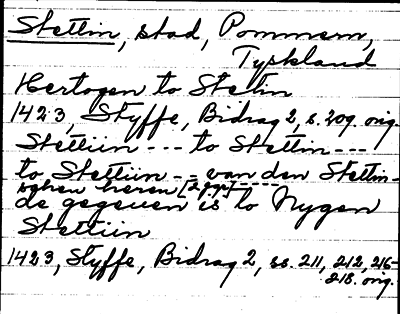 Stettin, stad, Pommern,
Tyskland
Hertogen to Stetin
1423, Styffe, Bidrag 2, s. 209. orig.
Stettiin --- to Stettin ---
to Stettiin -- van den Stettin-
schen heren [2 ggr] ----
de gegeven is to Nygen
Stettiin
1423, Styffe, Bidrag 2, ss. 211, 212, 216-
218. orig.